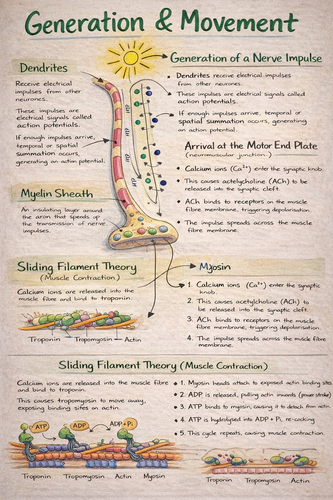 Generation & Movement
Dendrites
Receive electrical
impulses from other
neurones.
These impulses are
electrical signals called
action potentials.
If enough impulses arrive,
temporal or spatial
summation occurs,
generating an action potential.
Myelin Sheath
An insulating layer around
the axon that speeds up
the transmission of nerve
impulses.
Generation of a Nerve Impulse
• Dendrites receive electrical impulses
from other neurones.
• These impulses are electrical signals called
action potentials.
If enough impulses arrive, temporal or
spatial summation occurs, generating
an action potential.
Arrival at the Motor End Plate
(neuromuscular junction)
• Calcium ions (Ca²⁺) enter the synaptic knob.
• This causes acetylcholine (ACh) to be
released into the synaptic cleft.
• ACh binds to receptors on the muscle
fibre membrane, triggering depolarisation.
• The impulse spreads across the muscle fibre
membrane.
Sliding Filament Theory
(Muscle Contraction)
Calcium ions are released into the
muscle fibre and bind to troponin.
Troponin
Tropomyosin
Actin
Myosin
1. Calcium ions (Ca²⁺) enter the synaptic
knob.
2. This causes acetylcholine (ACh) to
be released into the synaptic cleft.
3. ACh binds to receptors on the muscle
fibre membrane, triggering depolarisation.
4. The impulse spreads across the muscle fibre
membrane.
Sliding Filament Theory (Muscle Contraction)
Calcium ions are released into the muscle fibre
and bind to troponin.
This causes tropomyosin to move away,
exposing binding sites on actin.
• 1. Myosin heads attach to exposed actin binding sites
• 2. ADP is released, pulling actin inwards (power stroke)
• 3. ATP binds to myosin, causing it to detach from actin.
• 4. ATP is hydrolysed into ADP + Pi, re-cocking
• 5. This cycle repeats, causing muscle contraction.
ATP
ADP
ADP+Pi
Troponin
Tropomyosin
Actin
Myosin
Troponin
Tropomyosin
Actin